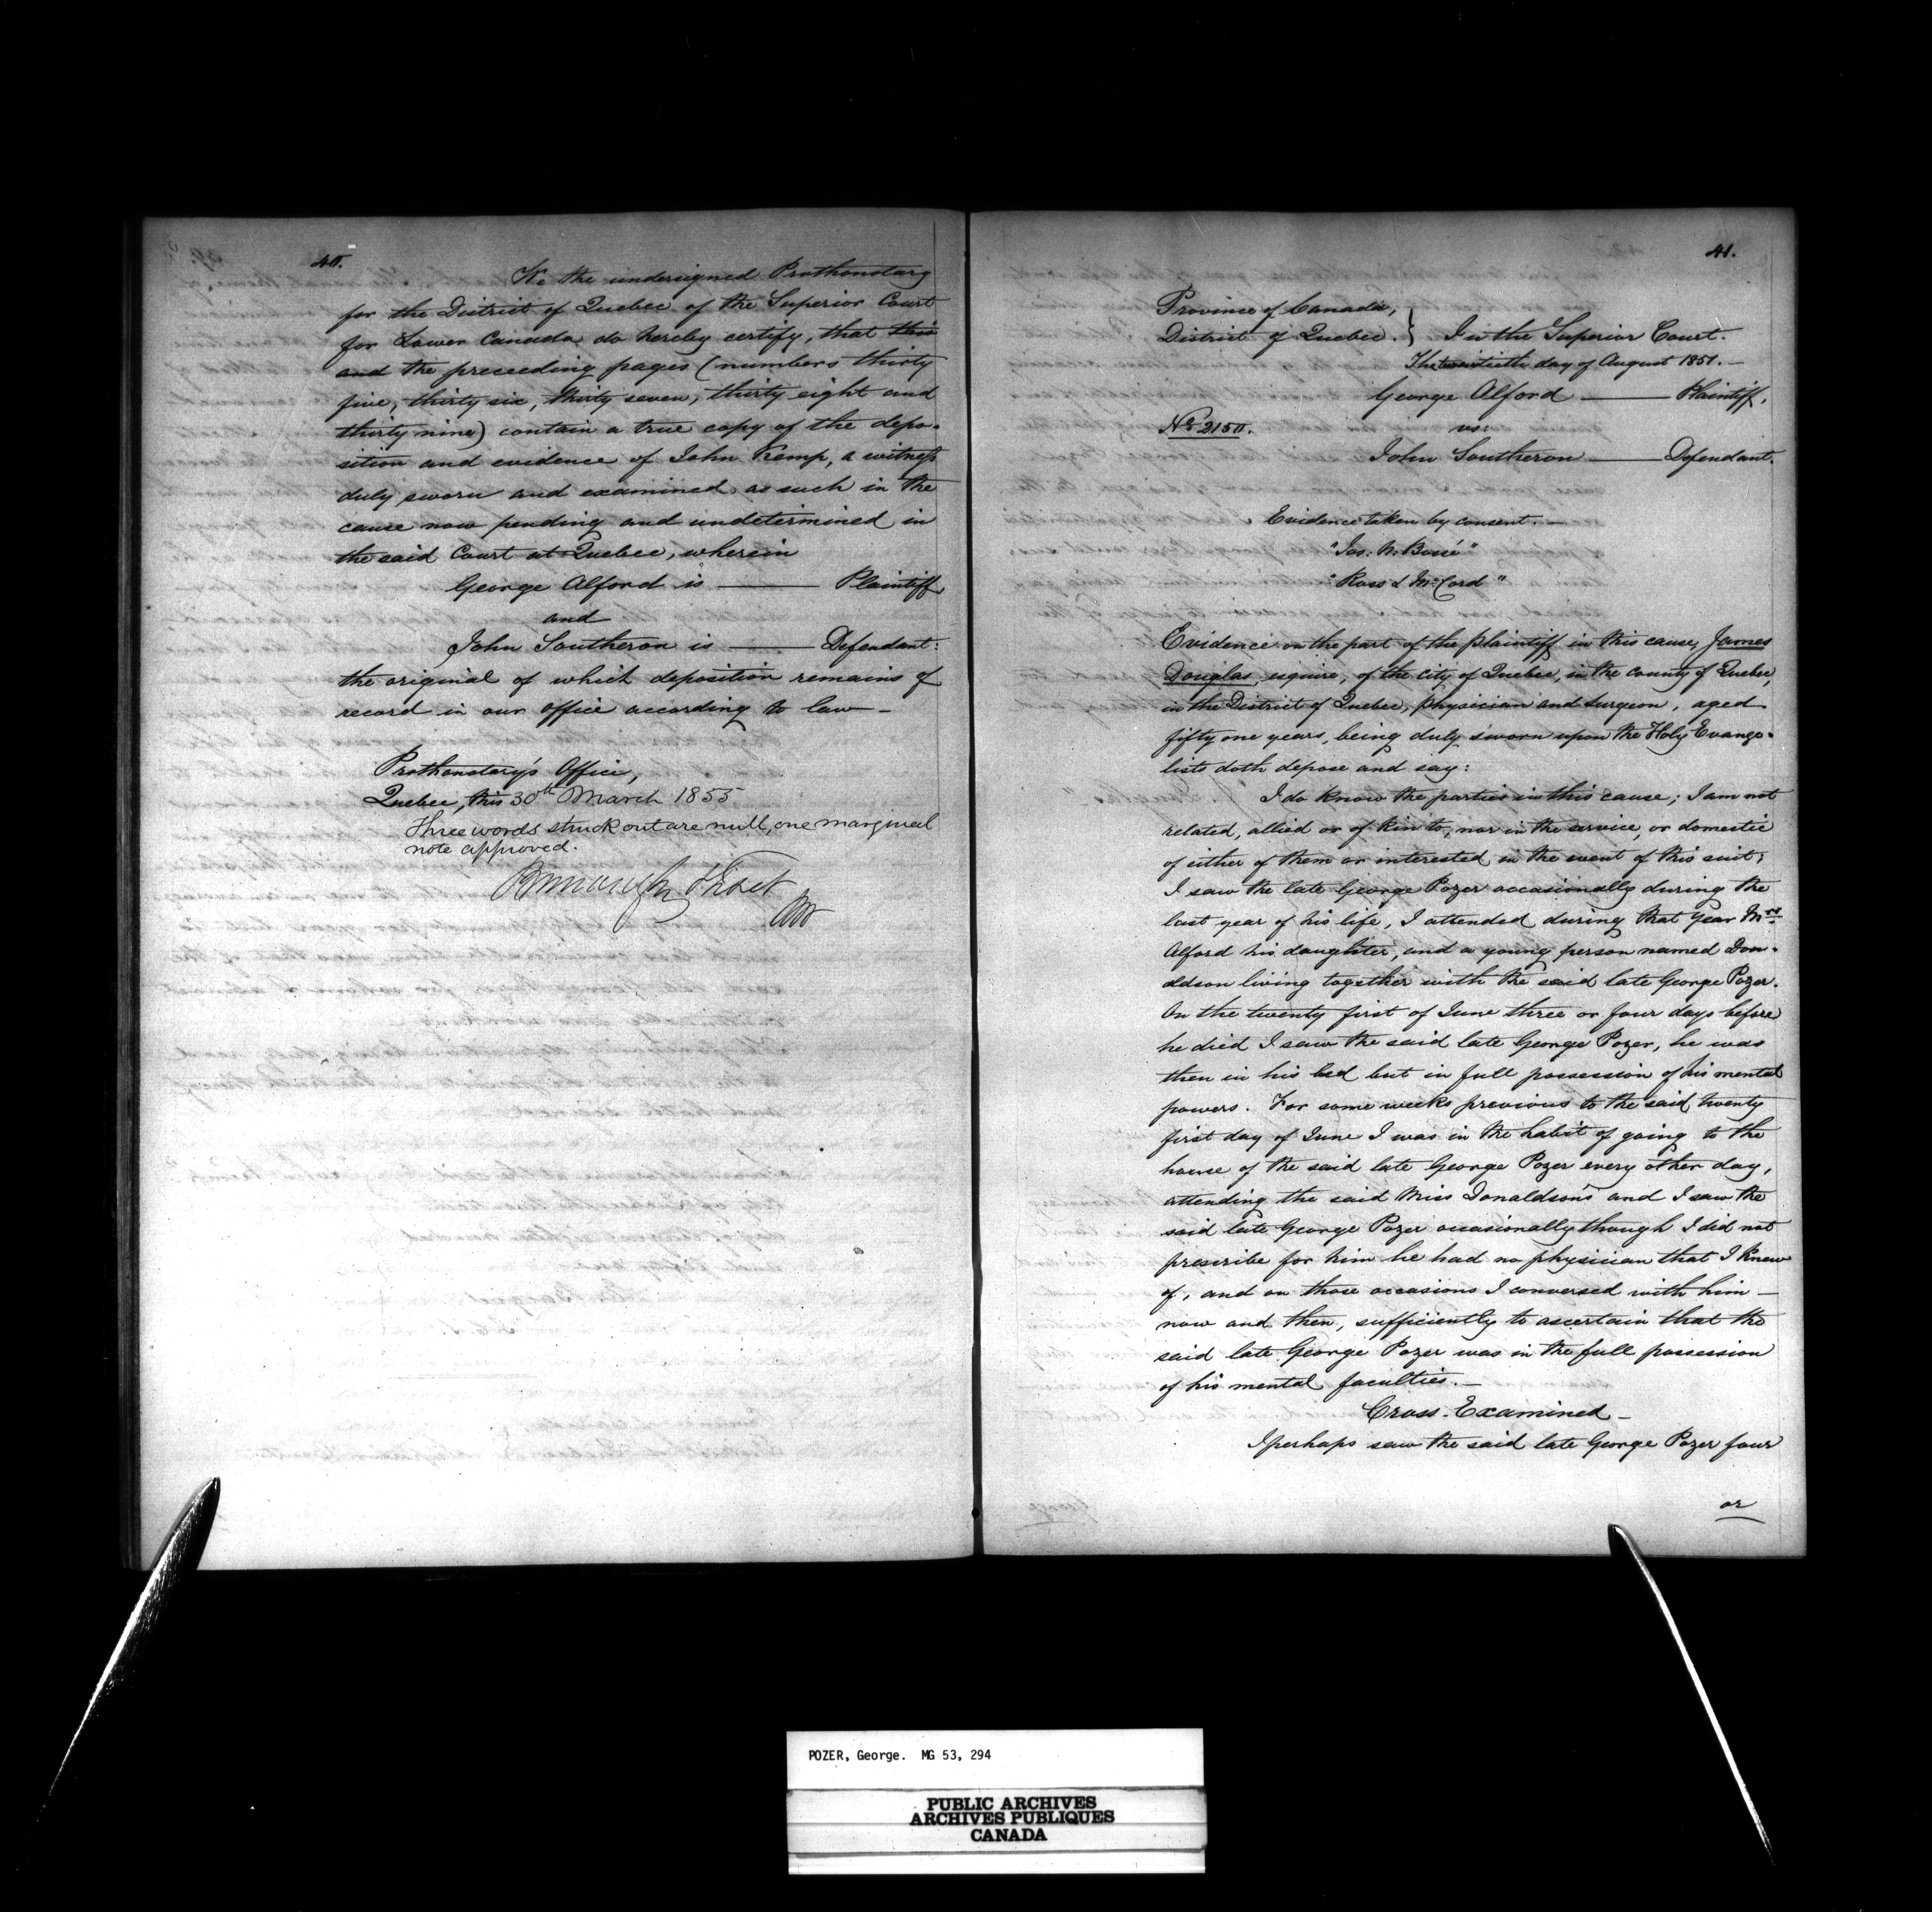 40.
We the undersigned Prothonotary
for the District of Quebec of the Superior Court
for Lower Canada do hereby certify, that this
and the preceeding pages (numbers thirty
five, thirty six, thirty seven, thirty eight and
thirty nine) contain a true copy of the depo-
sition and evidence of John Kemp, a witness
duly sworn and examined as such in the
cause now pending and undetermined in
the said Court at Quebec, wherein
George Alford is ——— Plaintiff
and
John Southeron is ——— Defendant:
the original of which deposition remains of
record in our office according to law —
Prothonotary's Office,
Quebec, this 30th March 1855
Three words struck out are null, one marginal
note approved.
41.
Province of Canada,
District of Quebec. } In the Superior Court.
The twentieth day of August 1851. —
George Alford ——— Plaintiff,
No 2150.
vs:
John Southeron ——— Defendant.
Evidence taken by consent. —
"Jos: N. Bossé"
"Ross & McCord"
Evidence on the part of the plaintiff in this cause, James
Douglas esquire, of the city of Quebec, in the county of Quebec,
in the District of Quebec, physician and surgeon, aged
fifty one years, being duly sworn upon the Holy Evange-
lists doth depose and say:
I do know the parties in this cause; I am not
related, allied or of kin to, nor in the service, or domestic
of either of them or interested in the event of this suit;
I saw the late George Pozer occasionally during the
last year of his life, I attended during that year Mrs
Alford his daughter, and a young person named Don-
aldson living together with the said late George Pozer.
On the twenty first of June three or four days before
he died I saw the said late George Pozer, he was
then in his bed but in full possession of his mental
powers. For some weeks previous to the said twenty
first day of June I was in the habit of going to the
house of the said late George Pozer every other day,
attending the said Miss Donaldson's and I saw the
said late George Pozer occasionally though I did not
prescribe for him he had no physician that I knew
of, and on those occasions I conversed with him —
now and then, sufficiently to ascertain that the
said late George Pozer was in the full possession
of his mental faculties. —
Cross-Examined —
I perhaps saw the said late George Pozer four
or
POZER, George. MG 53, 294
PUBLIC ARCHIVES
ARCHIVES PUBLIQUES
CANADA